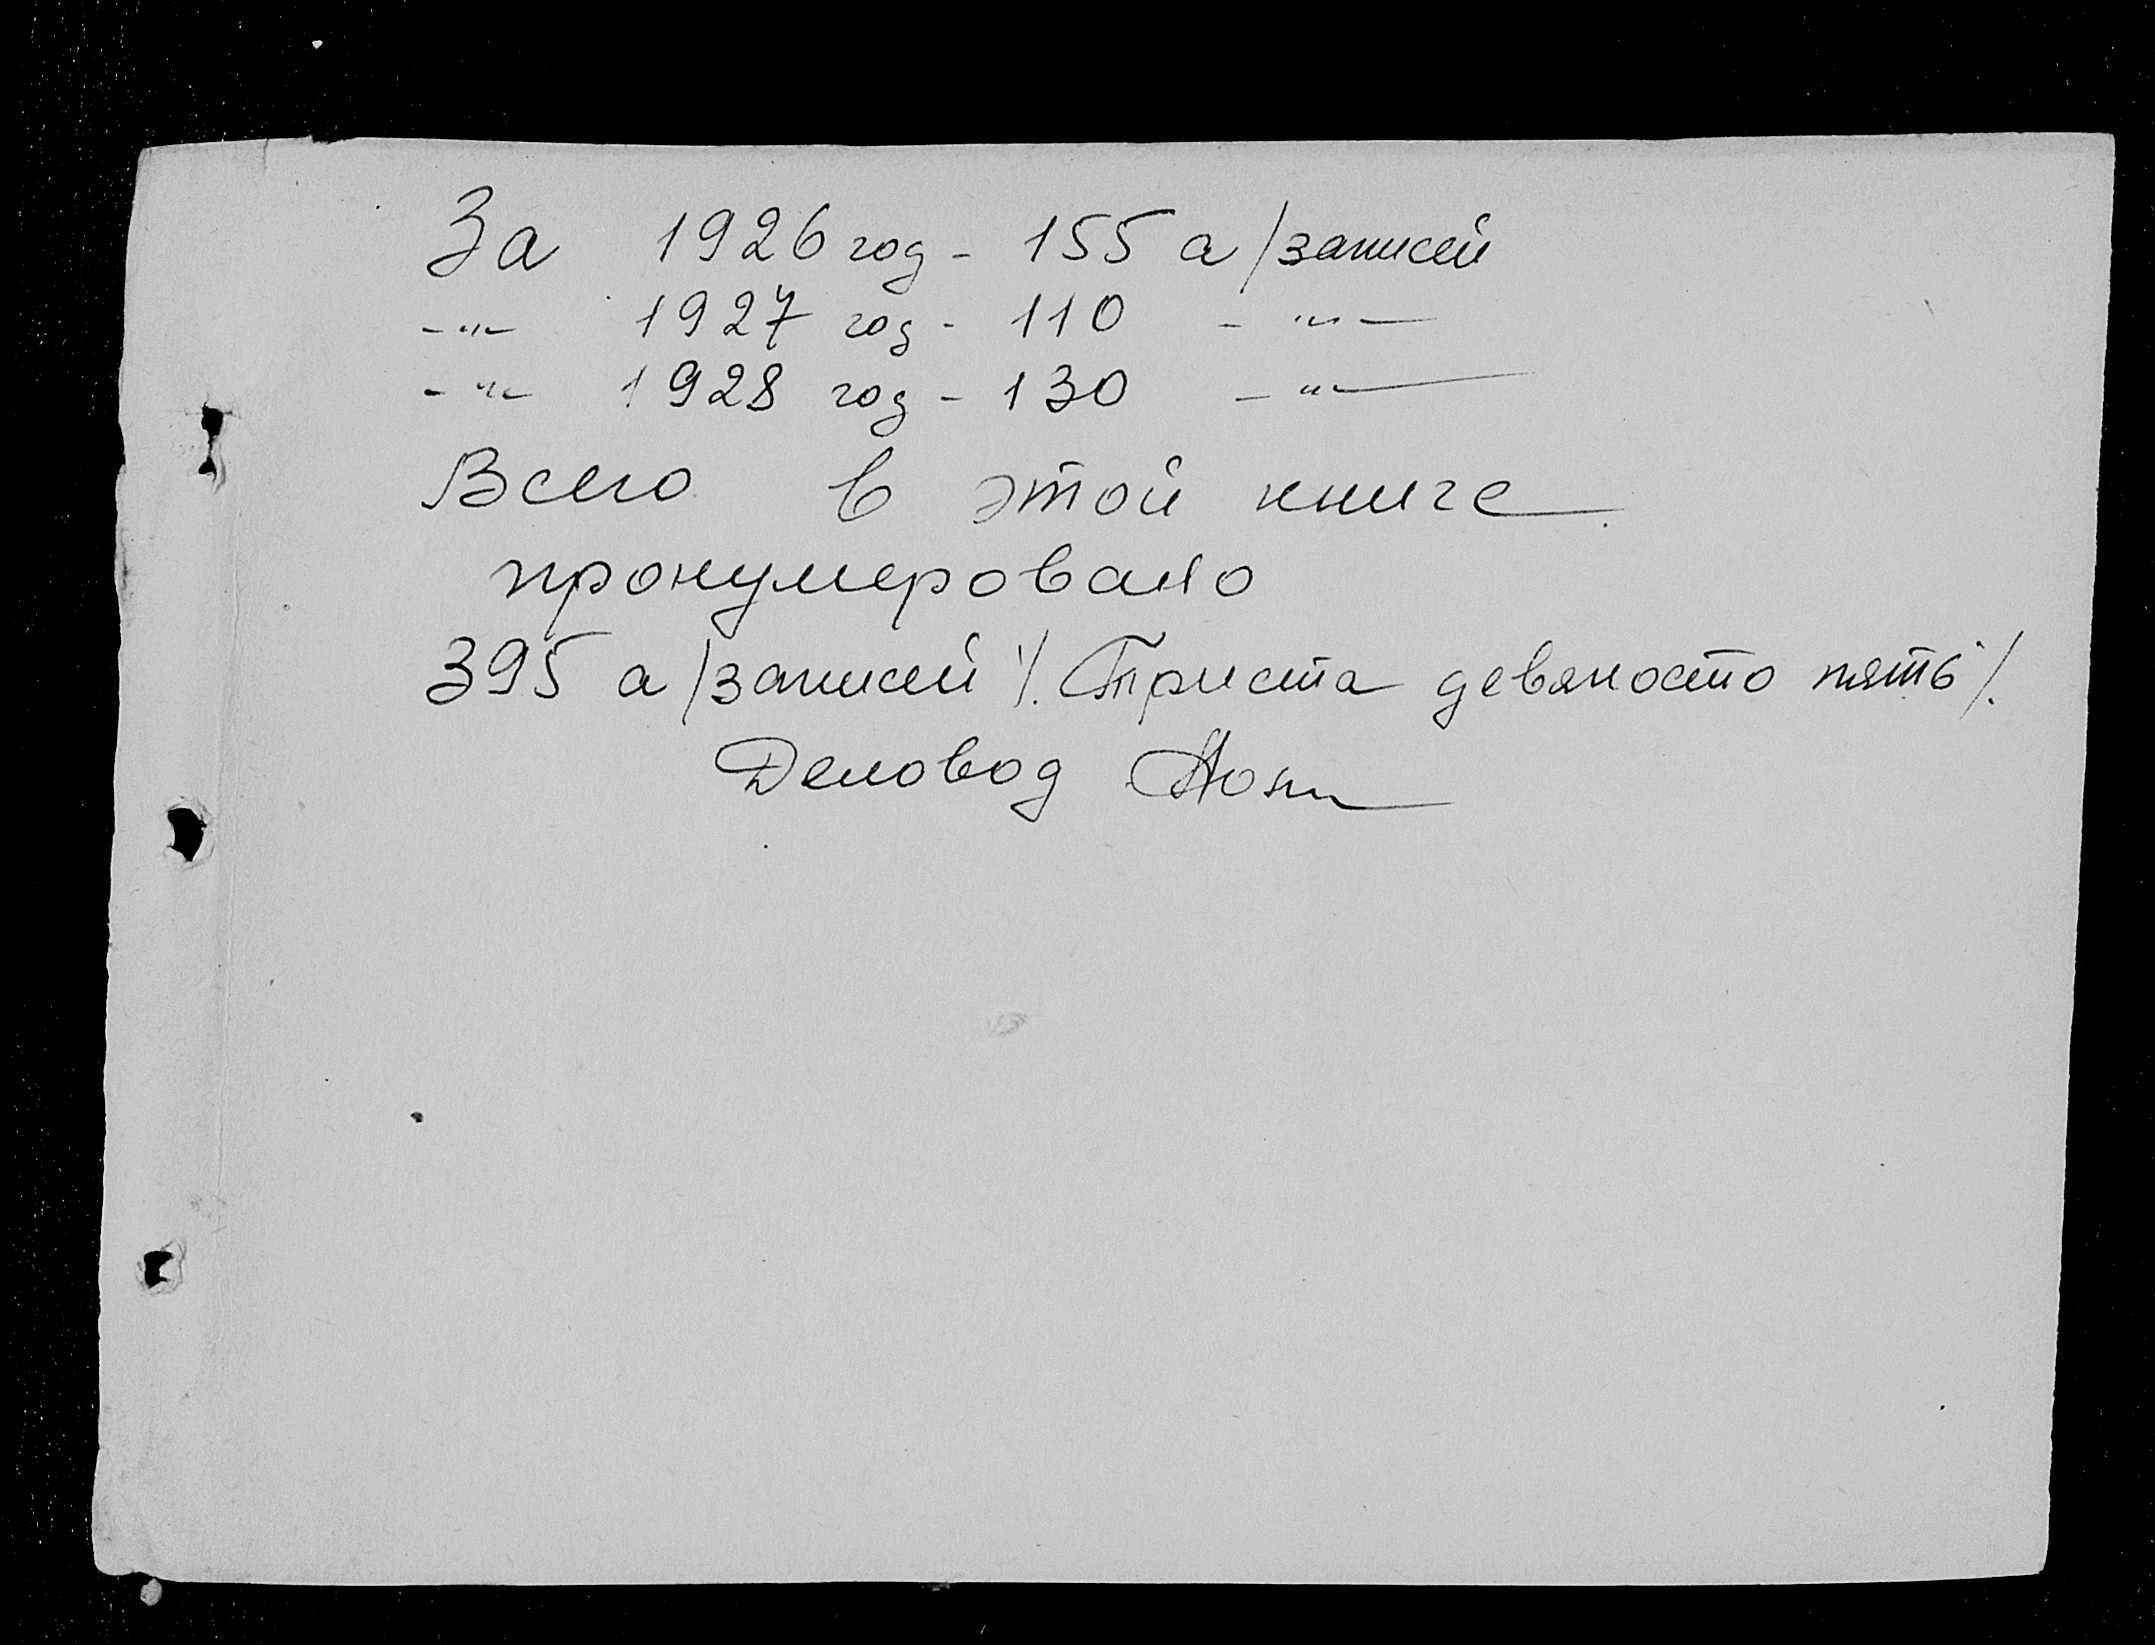 За 1926 год - 155 а/записей
-"- 1927 год - 110 -"-
-"- 1928 год - 130 -"-
Всего в этой книге
пронумеровано
395 а/записей /. Триста девяносто пять /.
Деловод